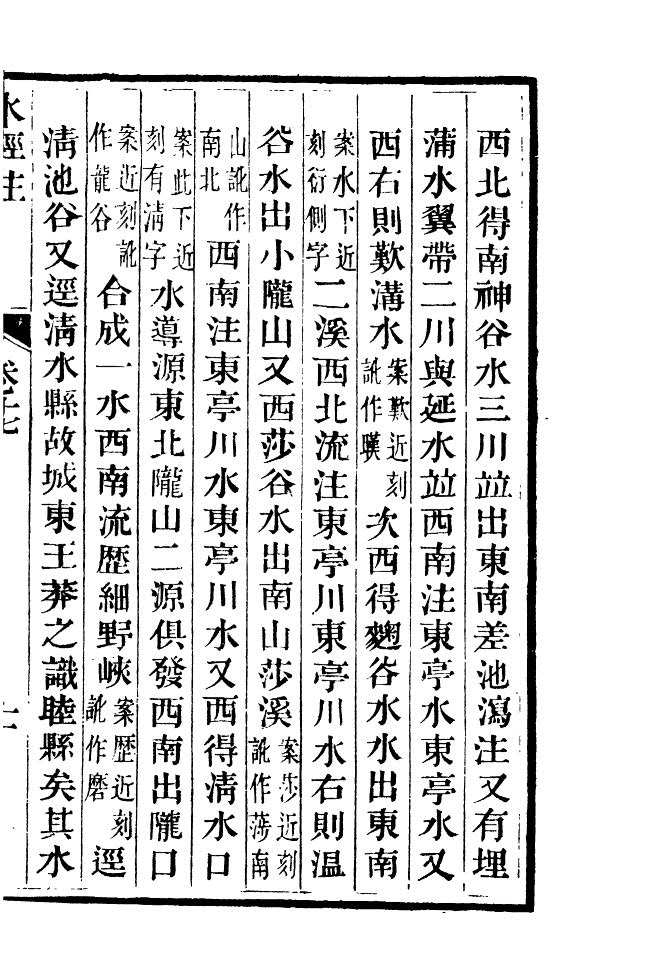 西北得南神谷水三川竝出東南差池瀉注又有埋
蒲水翼帶二川與延水竝西南注東亭水東亭水又
西右則歎溝水案歎近刻訛作暵次西得麴谷水水出東南
案水下近刻衍側字二溪西北流注東亭川東亭川水右則温
谷水出小隴山又西莎谷水出南山莎溪案莎近刻訛作蒲南
山訛作南北西南注東亭川水東亭川水又西得清水口
案此下近刻有清字水導源東北隴山二源俱發西南出隴口
合成一水西南流歴細野峽案歴近刻訛作磨逕
案近刻訛作龍谷清池谷又逕清水縣故城東王莽之識睦縣矣其水
水經注
卷十七
十一